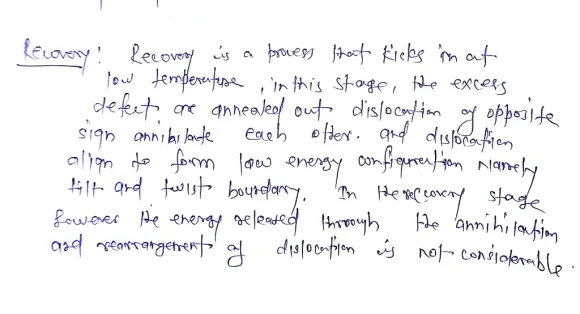 Recovery: Recovery is a process that kicks in at
low temperature, in this stage, the excess
defect are annealed out dislocation of opposite
sign annihilate each other. and dislocation
align to form low energy configuration Namely
tilt and twist boundary. In the recovery stage
however the energy released through the annihilation
and rearrangement of dislocation is not considerable.